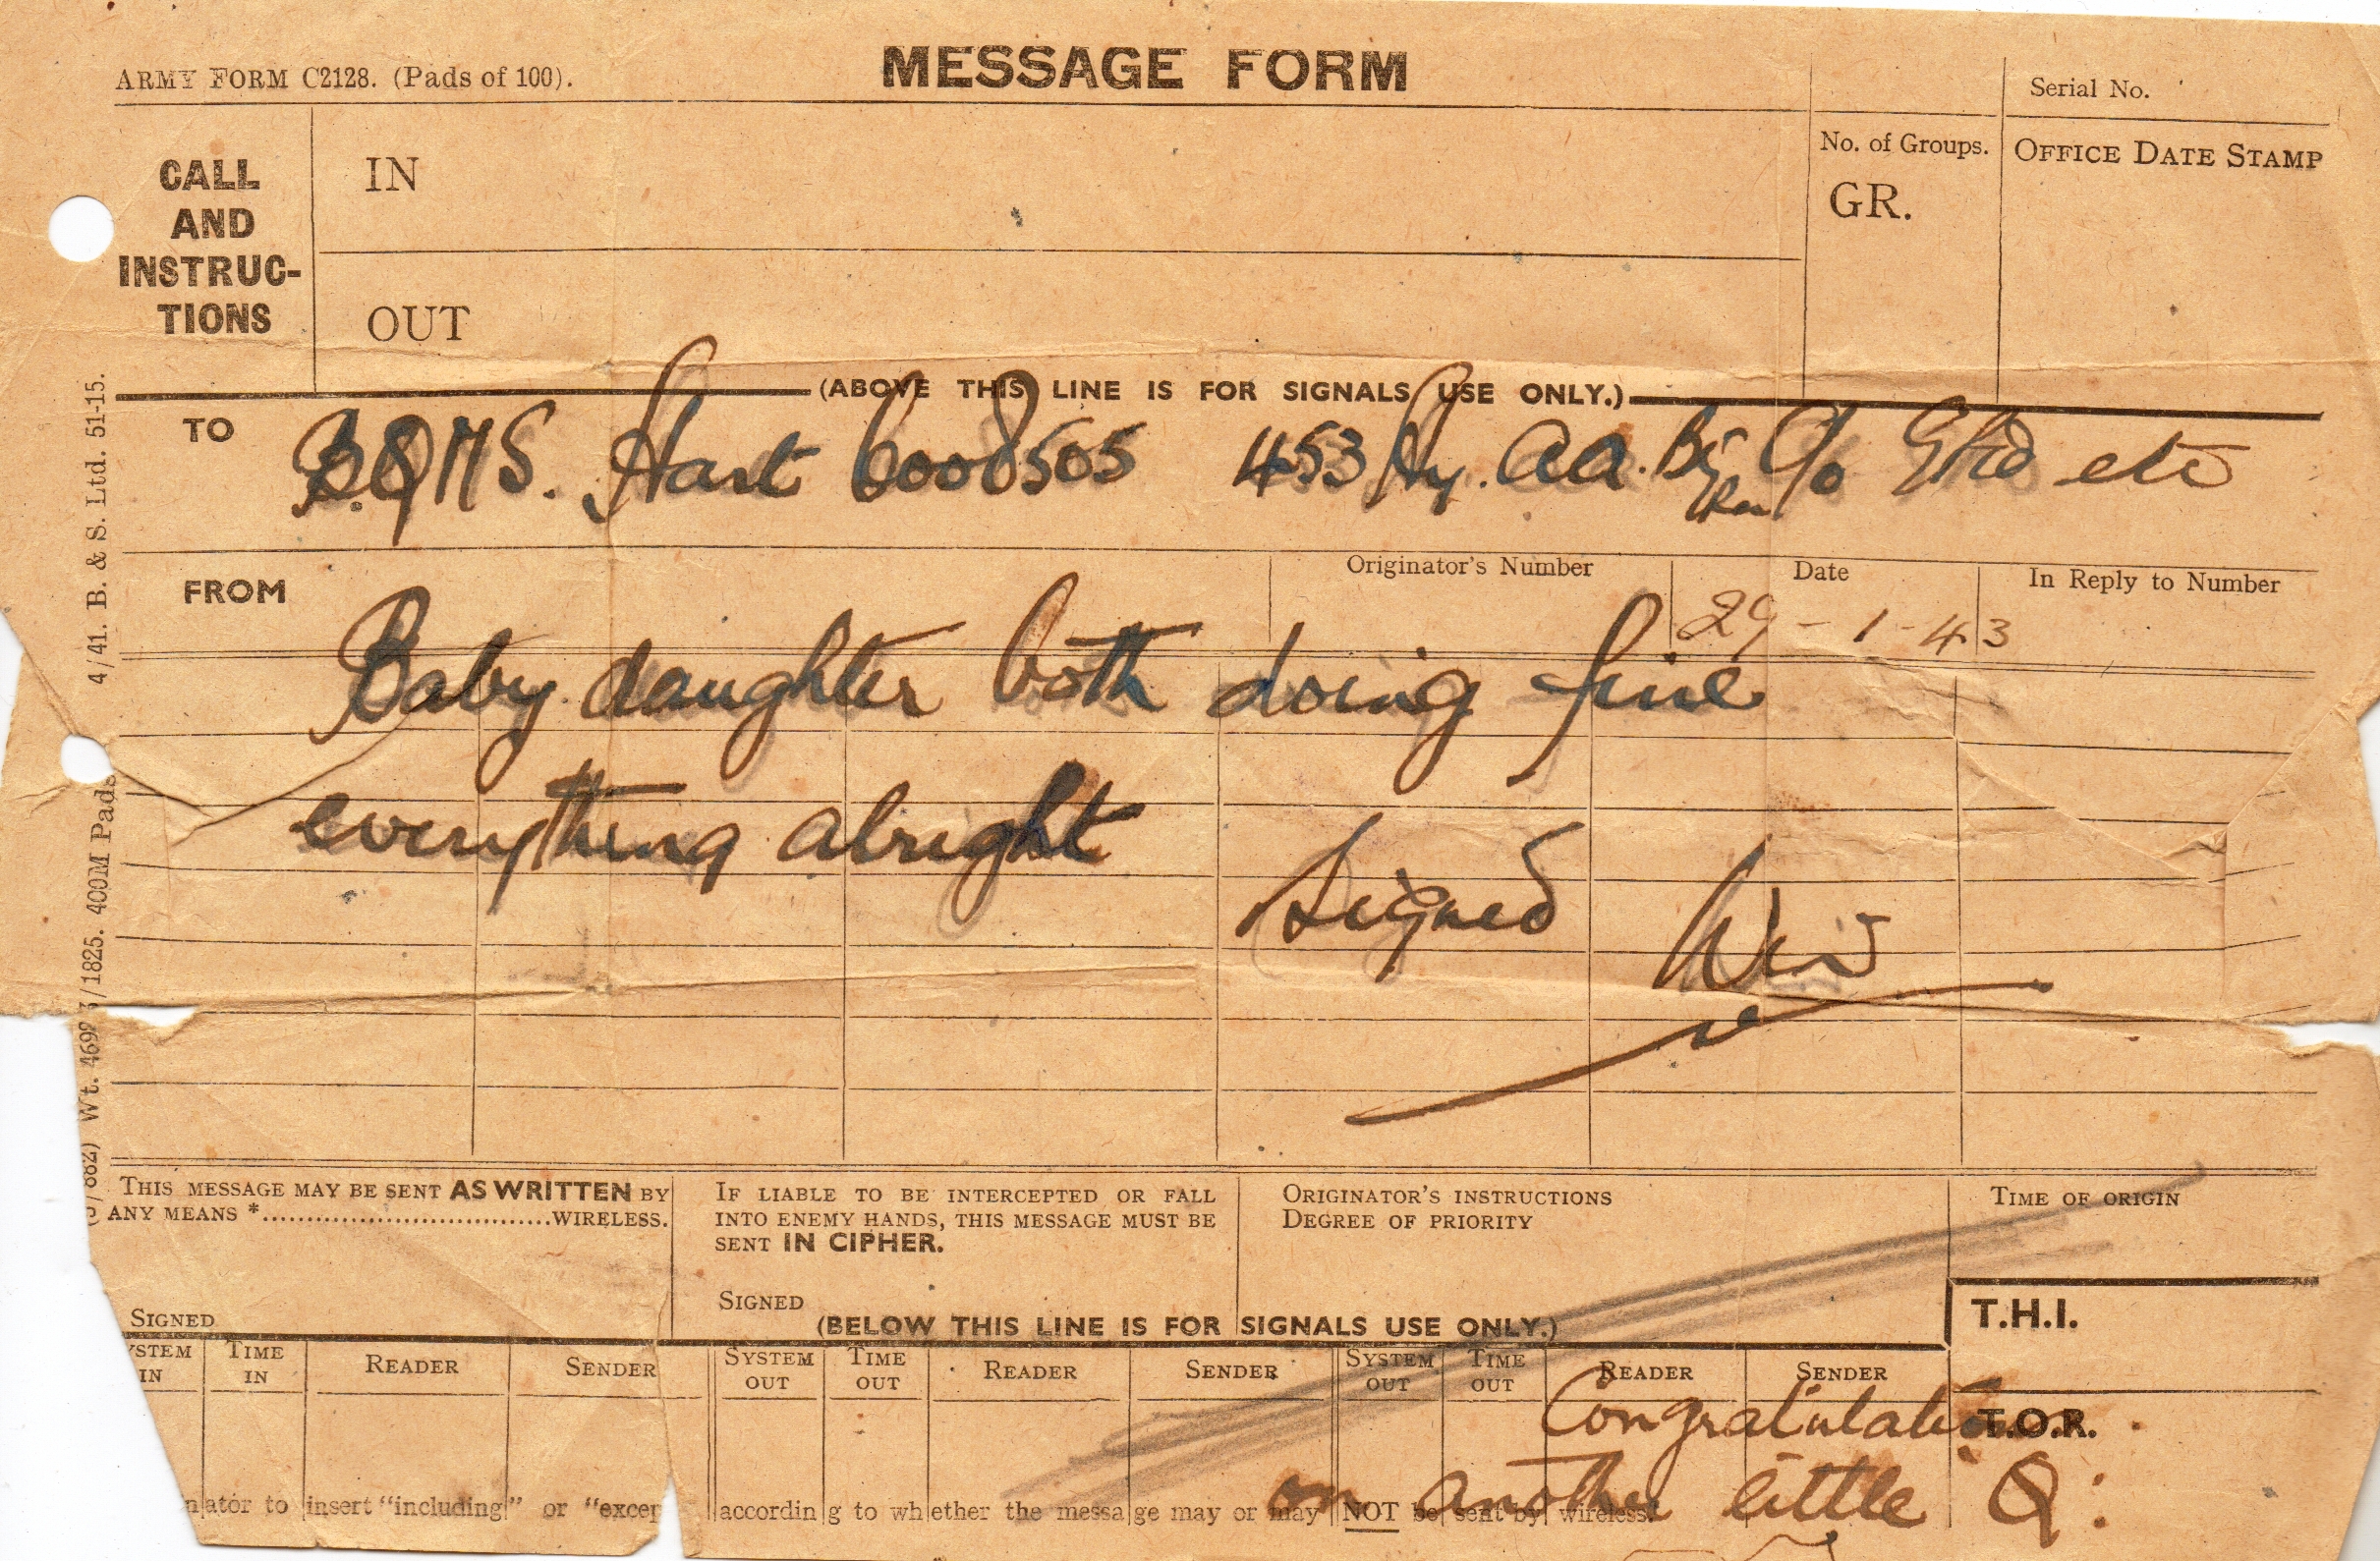 ARMY FORM C2128. (Pads of 100).
MESSAGE FORM
Serial No.
CALL AND INSTRUC-TIONS
IN
OUT
No. of Groups.
GR.
OFFICE DATE STAMP
(ABOVE THIS LINE IS FOR SIGNALS USE ONLY.)
TO B.Q.M.S. Hart 6008505 453 Hy. A.A. Bty RA c/o Ghd etc
FROM
Originator's Number
Date
In Reply to Number
29-1-43
Baby daughter both doing fine
everything alright
Signed Win
4/41. B. & S. Ltd. 51-15.
/1825. 400M Pads
THIS MESSAGE MAY BE SENT AS WRITTEN BY
ANY MEANS *..................................WIRELESS.
SIGNED
IF LIABLE TO BE INTERCEPTED OR FALL
INTO ENEMY HANDS, THIS MESSAGE MUST BE
SENT IN CIPHER.
SIGNED
ORIGINATOR'S INSTRUCTIONS
DEGREE OF PRIORITY
TIME OF ORIGIN
(BELOW THIS LINE IS FOR SIGNALS USE ONLY.)
T.H.I.
YSTEM IN
TIME IN
READER
SENDER
SYSTEM OUT
TIME OUT
READER
SENDER
SYSTEM OUT
TIME OUT
READER
SENDER
T.O.R.
Congratulations
on another little Q:
nator to insert "including" or "excep according to whether the message may or may NOT be sent by wireless.